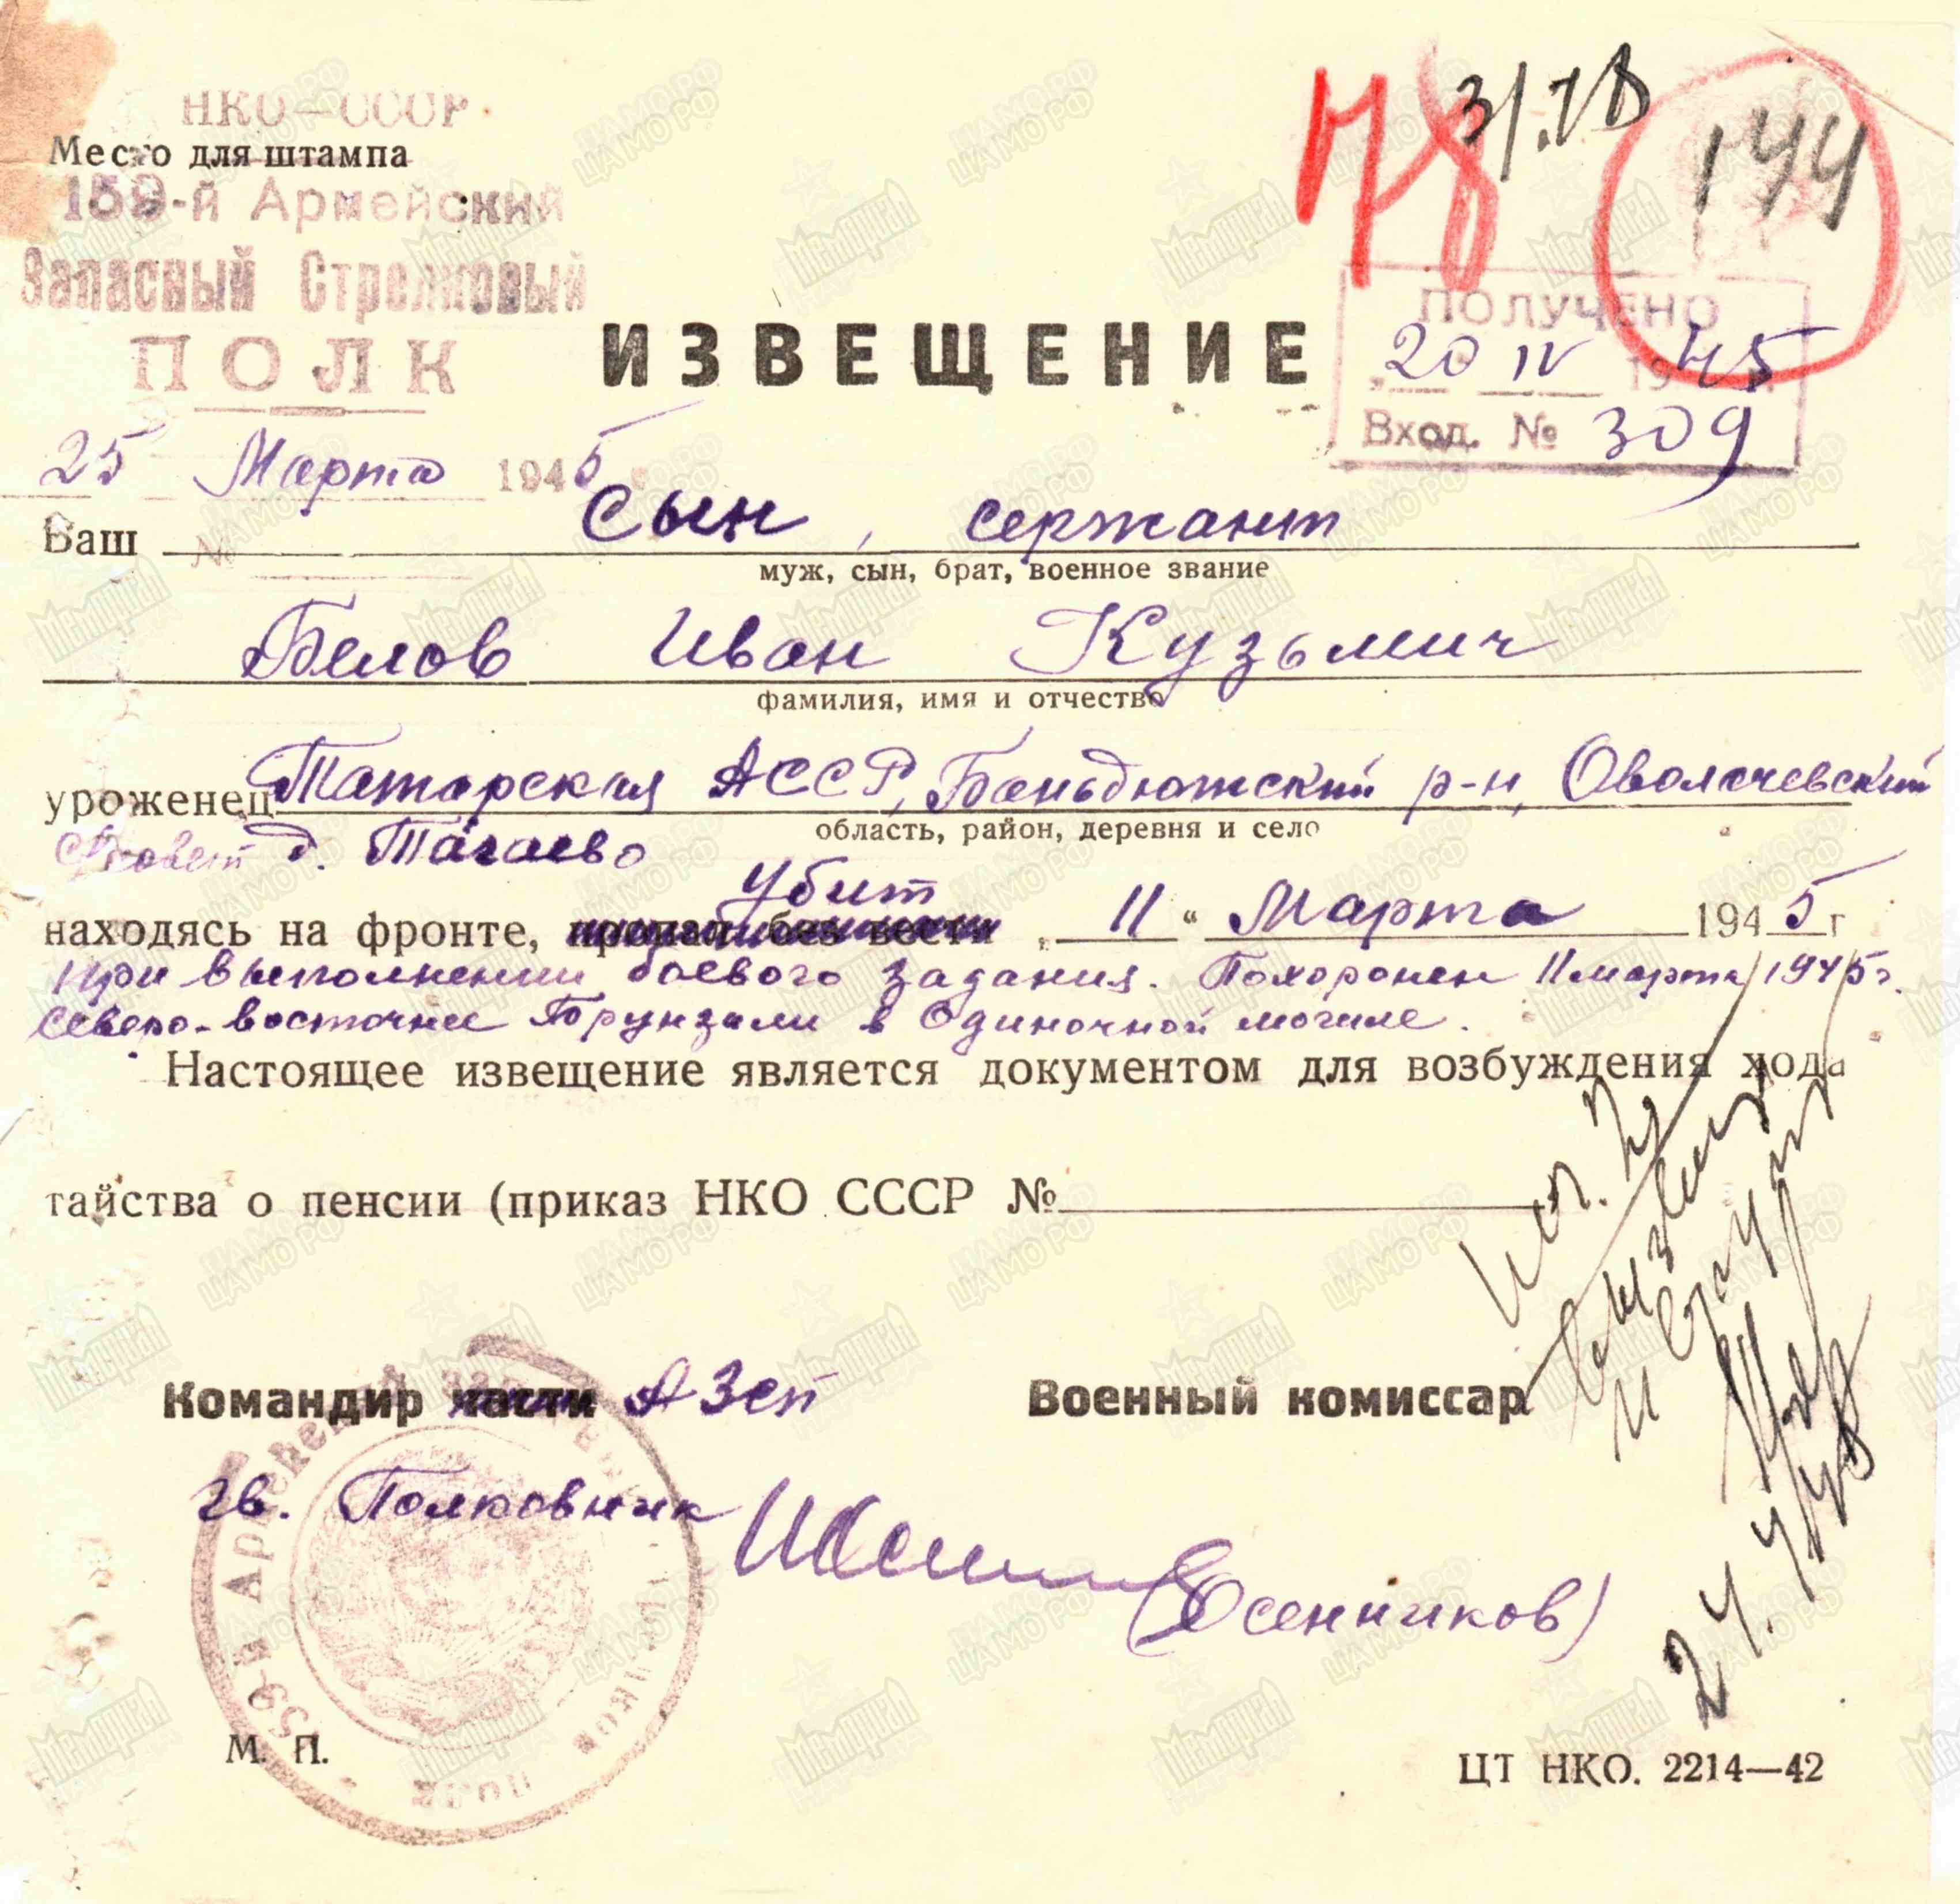 НКО—СССР
Место для штампа
159-й Армейский
Запасный Стрелковый
ПОЛК
78
31.18
144
ИЗВЕЩЕНИЕ
ПОЛУЧЕНО
„20 IV 1945
Вход. № 309
25 Марта 1945
Ваш № сын, сержант
муж, сын, брат, военное звание
Белов Иван Кузьмич
фамилия, имя и отчество
уроженец Татарская АССР, Бондюжский р-н,
область, район, деревня и село
с/совет д. Тагаево
убит
находясь на фронте, пропал без вести „ 11 “ Марта 1945 г
при выполнении боевого задания. Похоронен 11 марта 1945 г.
северо-восточнее в одиночной могиле.
Настоящее извещение является документом для возбуждения хода
тайства о пенсии (приказ НКО СССР №
Командир части АЗсп
Военный комиссар
гв. Полковник
(Осенчиков)
159-й Армейский
полк
М. П.
ЦТ НКО. 2214—42